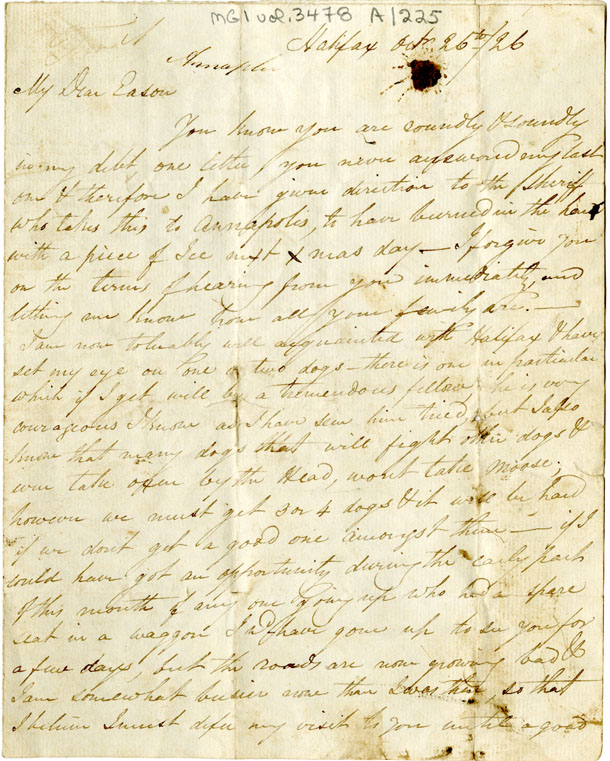 MG1 vol. 3478 A/225
Halifax Octr 26th/26
Annapolis
My Dear Eason
You know you are roundly & soundly
in my debt one letter, you never answered my last
one & therefore I have given direction to the Sheriff
who takes this to Annapolis, to have burned in the hand
with a piece of Ice next Xmas day — I forgive you
on the terms of hearing from you immediately and
letting me know how all your family are. —
I am now tolerably well acquainted with Halifax & have
set my eye on one or two dogs — there is one in particular
which if I get will be a tremendous fellow he is very
courageous I know as I have seen him tried, but I also
know that many dogs that will fight other dogs &
even take oxen by the Head, wont take Moose;
however we must get 3 or 4 dogs & it will be hard
if we don't get a good one amongst them — if I
could have got an opportunity during the early part
of this month of any one going up who had a spare
seat in a waggon I wd have gone up to see you for
a few days, but the roads are now growing bad &
I am somewhat busier now than I was then, so that
I believe I must defer my visit to you until a good